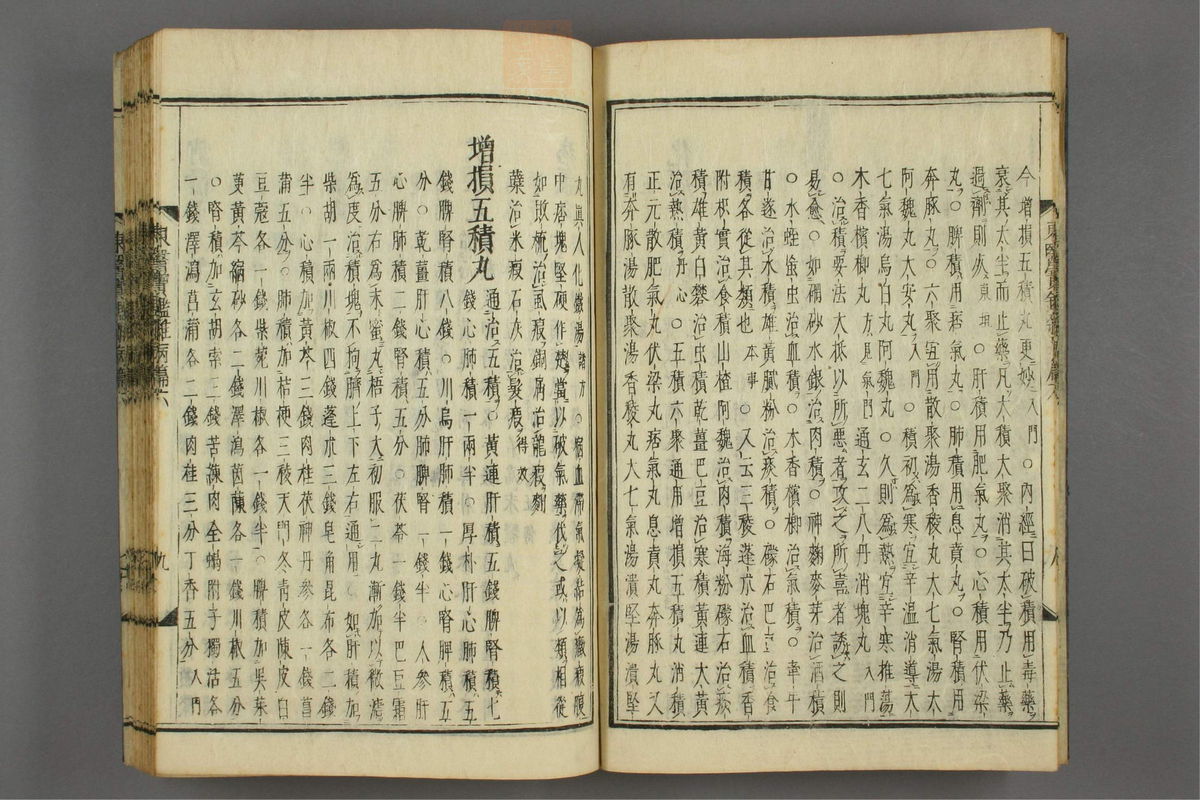 今增損五積丸更妙入門○內經曰破積用毒藥
衰其太半而止藥凡大積大聚消其太半乃止藥
過劑則死東垣○肝積用肥氣丸○心積用伏梁
丸○脾積用痞氣丸○肺積用息賁丸○腎積用
奔豚丸○六聚宜用散聚湯香稜丸大七氣湯太
阿魏丸大安丸入門○積初爲寒宜辛溫消導大
七氣湯烏白丸阿魏丸○久則爲熱宜辛寒推蕩
木香檳榔丸方見氣門通玄二八丹消塊丸入門
○治積要法大抵以所惡者攻之所喜者誘之則
易愈○如硇砂水銀治肉積○神麴麥芽治酒積
○水蛭䖟虫治血積○木香檳榔治氣積○牽牛
甘遂治水積雄黃膩粉治痰積○礞石巴豆治食
積各從其類也本事○又云三稜蓬朮治血積香
附枳實治食積山楂阿魏治肉積海粉礞石治痰
積雄黃白礬治虫積乾薑巴豆治寒積黃連大黃
治熱積丹心○五積六聚通用增損五積丸消積
正元散肥氣丸伏梁丸痞氣丸息賁丸奔豚丸又
有奔豚湯散聚湯香稜丸大七氣湯潰堅湯潰堅
丸眞人化癥湯諸方○瘀血滯氣凝結爲癥瘕腹
中痞塊堅硬作楚當以破氣藥伐之或以類相從
如敗梳治虱瘕銅屑治龍瘕麴
蘗治米瘕石灰治髮瘕得效
增損五積丸
通治五積○黃連肝積五錢脾腎積七
錢心肺積一兩半○厚朴肝心肺積五
錢脾腎積八錢○川烏肝肺積一錢心腎脾積五
分○乾薑肝心積五分肺脾腎一錢半○人參肝
心脾肺積二錢腎積五分○茯苓一錢半巴豆霜
五分右爲末蜜丸梧子大初服二丸漸加以微溏
爲度治積塊不拘臍上下左右通用○如肝積加
柴胡一兩川椒四錢蓬朮三錢皂角昆布各二錢
半○心積加黃芩三錢肉桂茯神丹參各一錢菖
蒲五分○肺積加桔梗三稜天門冬靑皮陳皮白
豆蔲各一錢柴菀川椒各一錢半○脾積加吳茱
萸黃芩縮砂各二錢澤瀉茵蔯各一錢川椒五分
○腎積加玄胡索三錢苦練肉全蝎附子獨活各
一錢澤瀉菖蒲各二錢肉桂三分丁香五分入門
東醫寶鑑雜病篇六
九
東醫寶鑑雜病篇六